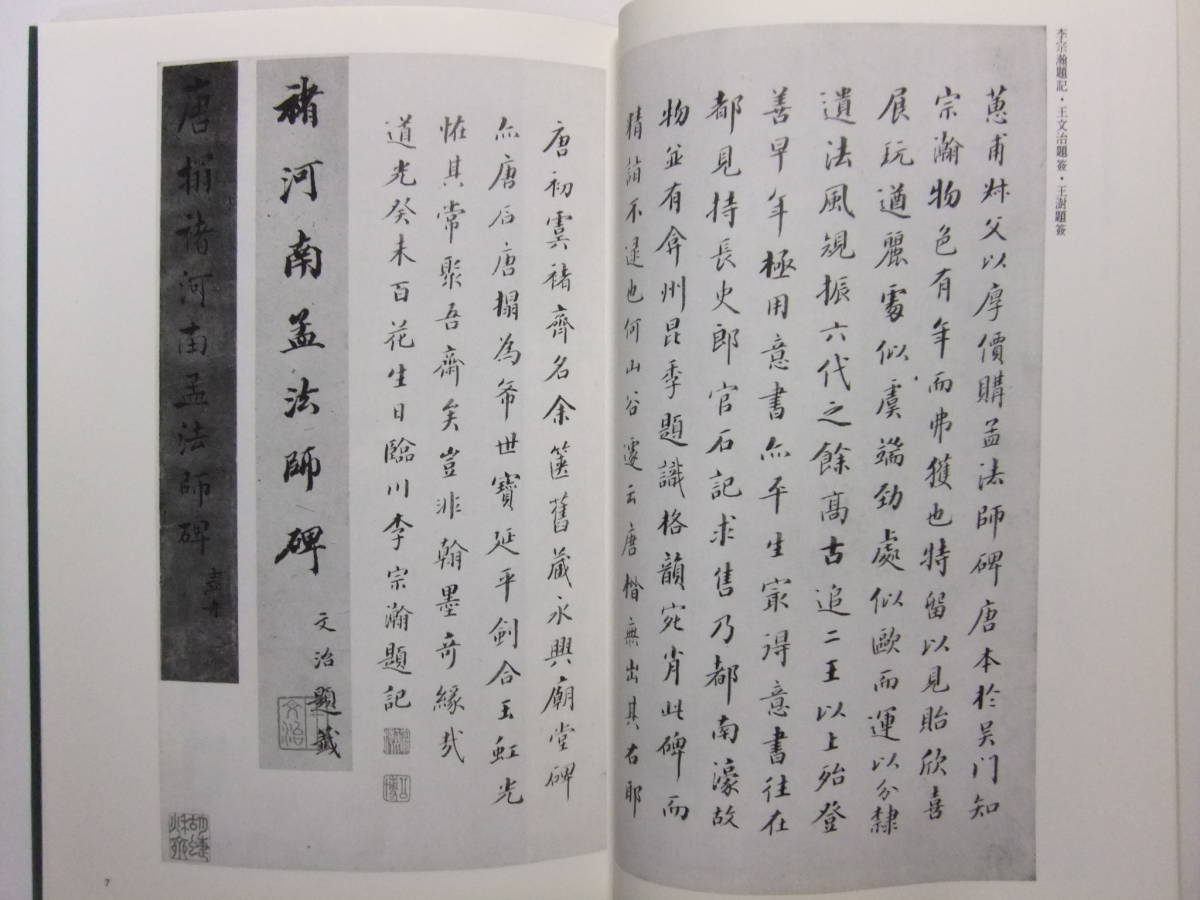 李宗瀚題記・王文治題簽・王澍題簽
蕙甫叔父以厚價購孟法師碑唐本於吴门知
宗瀚物色有年而弗獲也特留以見貽欣喜
展玩遒麗處似虞端勁處似歐而運以分隸
遺法風規振六代之餘髙古追二王以上殆登
善早年極用意書亦平生㝡得意書往在
都見持長史郎官石記求售乃都南濠故
物並有弇州昆季題識格韻宛肖此碑而
精詣不逮也何山谷遽云唐楷無出其右耶
唐初虞褚齊名余篋舊藏永興廟堂碑
亦唐石唐搨為希世寶延平劍合玉虹光
恠其常聚吾齋矣豈非翰墨奇緣哉
道光癸未百花生日臨川李宗瀚題記
褚河南孟法師碑
文治題籤
文治
唐搨褚河南孟法師碑
7